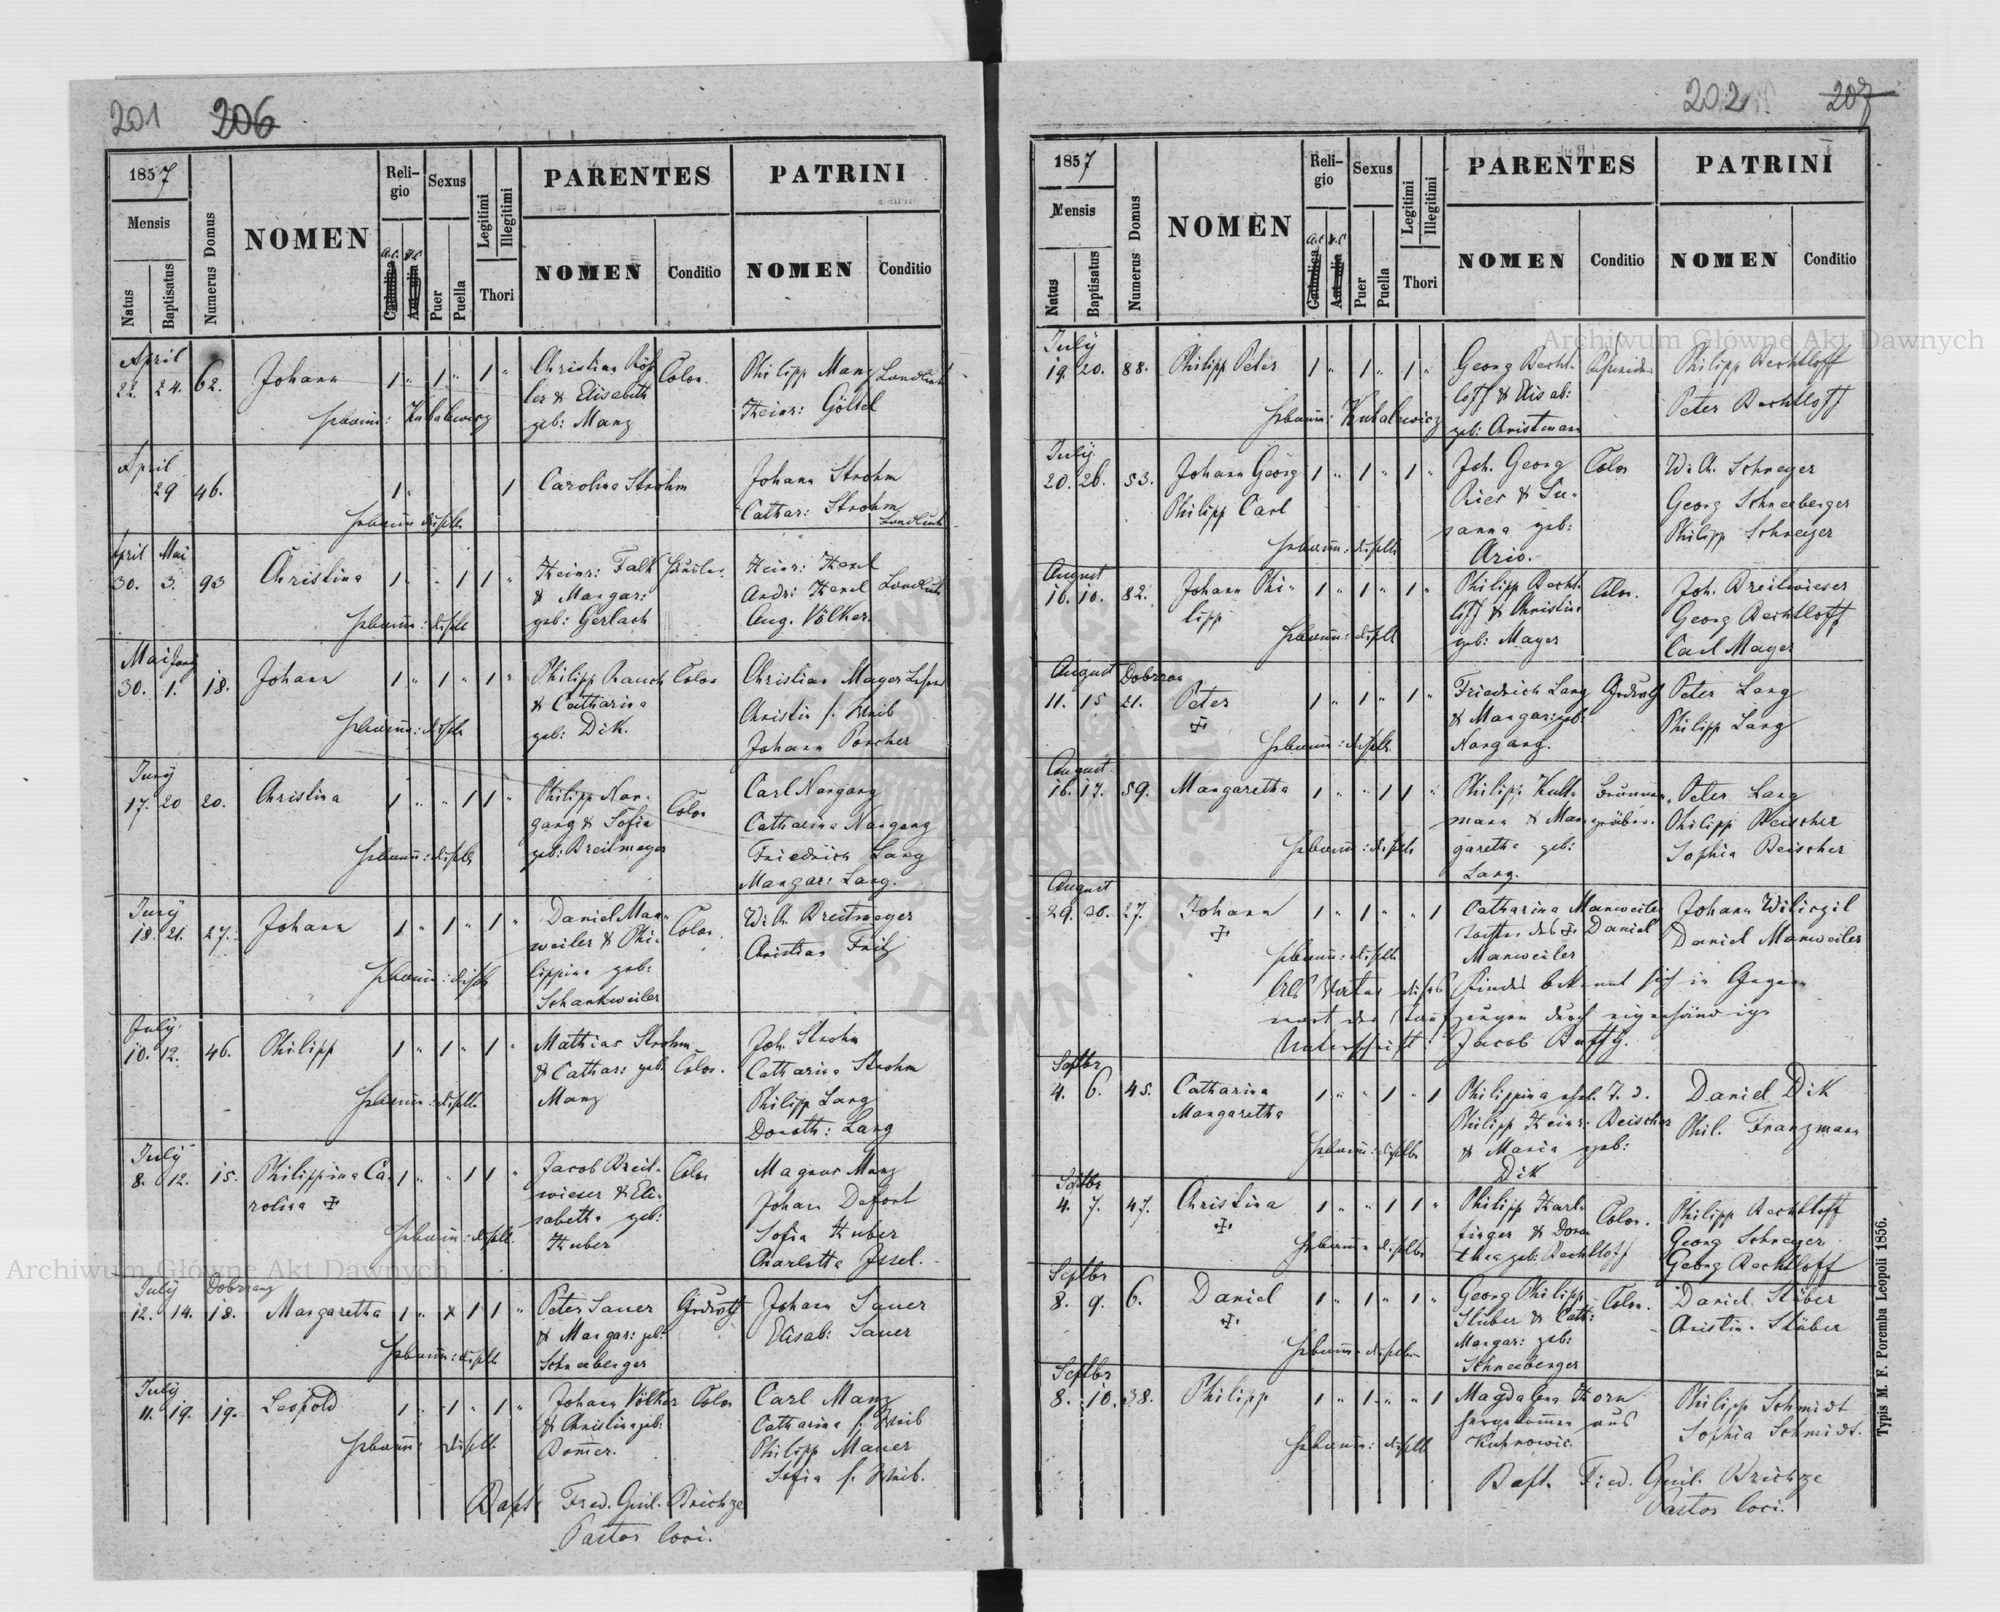 201 206
1857
Mensis
Natus
Baptisatus
Numerus Domus
NOMEN
Religio
A.C.
H.C.
Sexus
Puer
Puella
Legitimi
Illegitimi
Thori
PARENTES
NOMEN
Conditio
PATRINI
NOMEN
Conditio
April
22. 24. 62. Johann 1 " 1 " 1 " Christian Röß- Colon. Philipp Manz Landleute
ler & Elisabeth Heinr: Göttel
Hebamm: Kubalewicz geb: Manz
April
29 46. 1 " 1 Carolina Strohm Johann Strohm
Cathar: Strohm
Hebamm: dieselbe Landleute
April Mai
30. 3. 93 Christina 1 " " 1 1 " Heinr: Falk Heinr: Hexel
& Margar: Andr: Hexel Landleute
Hebamm: dieselbe geb: Gerlach Aug. Völker
Mai Juny
30. 1. 18. Johann 1 " 1 " 1 " Philipp Rauch Colon Christian Mayer
& Catharina Christin s. Weib
Hebamm: dieselbe geb: Dik. Johann Porcher
Juny
17. 20 20. Christina 1 " " 1 1 " Philipp Nar- Colon Carl Nargang
gang & Sofia Catharina Nargang
Hebamm: dieselbe geb: Breitmayer Friedrich Lang
Margar: Lang.
Juny
18. 21. 27. Johann 1 " 1 " 1 " Daniel Man- Colon. W: A. Breitmayer
weiler & Phi- Christian Fritz
Hebamm: dieselbe lippina geb:
Schankweiler
July
10. 12. 46. Philipp 1 " 1 " 1 " Mathias Strohm Joh. Strohm
& Cathar: geb: Colon. Catharina Strohm
Hebamm: dieselbe Manz Philipp Lang
Doroth: Lang
July
8. 12. 15. Philippina Ca- 1 " " 1 1 " Jacob Breit- Colon Magnus Manz
rolina wieser & Eli- Johann Defort
Hebamm: dieselbe sabetha geb: Sofia Huber
Huber Charlotta Issel.
July Dobrzany
12. 14. 18. Margaretha 1 " x 1 1 " Peter Sauer Johann Sauer
& Margar: geb: Elisab: Sauer
Hebamm: dieselbe Schneeberger
July
11. 19. 19. Leopold 1 " 1 " 1 " Johann Völker Colon Carl Manz
& Christina geb: Catharina s. Weib
Hebamm: dieselbe Philipp Mauer
Sofia s. Weib.
Bapt: Fred. Guil. Brichze
Pastor loci.
202 207
1857
Mensis
Natus
Baptisatus
Numerus Domus
NOMEN
Religio
A.C.
H.C.
Sexus
Puer
Puella
Legitimi
Illegitimi
Thori
PARENTES
NOMEN
Conditio
PATRINI
NOMEN
Conditio
July
19. 20. 88. Philipp Peter 1 " 1 " 1 " Georg Becht- Philipp Bechtloff
loff & Elisab: Peter Bechtloff
Hebamm: Kubalewicz geb: Christmann
July
20. 26. 53. Johann Georg 1 " 1 " 1 " Joh. Georg Colon W: A. Schreyer
Philipp Carl Ries & Su- Georg Schneeberger
sanna geb: Philipp Schreyer
Hebamm: dieselbe
August
10. 10. 82. Johann Phi- 1 " 1 " 1 " Philipp Becht- Colon. Joh. Breitwieser
lipp loff & Christina Georg Bechtloff
Hebamm: dieselbe geb: Mayer Carl Mayer
August Dobrzan
11. 15 21. Peter 1 " 1 " 1 " Friedrich Lang Peter Lang
& Margar: geb: Philipp Lang
Hebamm: dieselbe Nargang.
August
16. 17. 59. Margaretha 1 " " 1 1 " Philipp Kull- Brunnen- Peter Lang
mann & Mar- gräber. Philipp Beischer
Hebamm: dieselbe garetha geb: Sophia Beischer
Lang.
August
29. 30. 27. Johann 1 " 1 " " 1 Catharina Manweiler
Tochter des Daniel Daniel Manweiler
Hebamm: dieselbe Manweiler
Als Vater dieses Kindes bekennt sich in Gegen-
wart der Taufzeugen durch eigenhändige
Unterschrift: Jacob Buffy.
Septbr
4. 6. 45. Catharina 1 " " 1 " 1 Philippina Daniel Dik
Margaretha Philipp Heinr: Beischer Phil. Franzmann
Hebamm: dieselbe & Maria geb:
Dik
Septbr
4. 7. 47. Christina 1 " " 1 1 " Philipp Harl- Colon. Philipp Bechtloff
finger & Doro- Georg Schreyer
Hebamm: dieselbe thea geb: Bechtloff Georg Bechtloff
Septbr
8. 9. 6. Daniel 1 " 1 " 1 " Georg Philipp Colon. Daniel Stüber
Stüber & Cath: Christin. Stüber
Hebamm: dieselbe Margar: geb:
Schneeberger
Septbr
8. 10. 38. Philipp 1 " 1 " " 1 Magdalena Horn Philipp Schmidt
hergekommen aus Sophia Schmidt.
Hebamm: dieselbe
Bapt. Fred. Guil. Brichze
Pastor loci.
Typis M. F. Poremba Leopoli 1856.
Archiwum Główne Akt Dawnych
Archiwum Główne Akt Dawnych